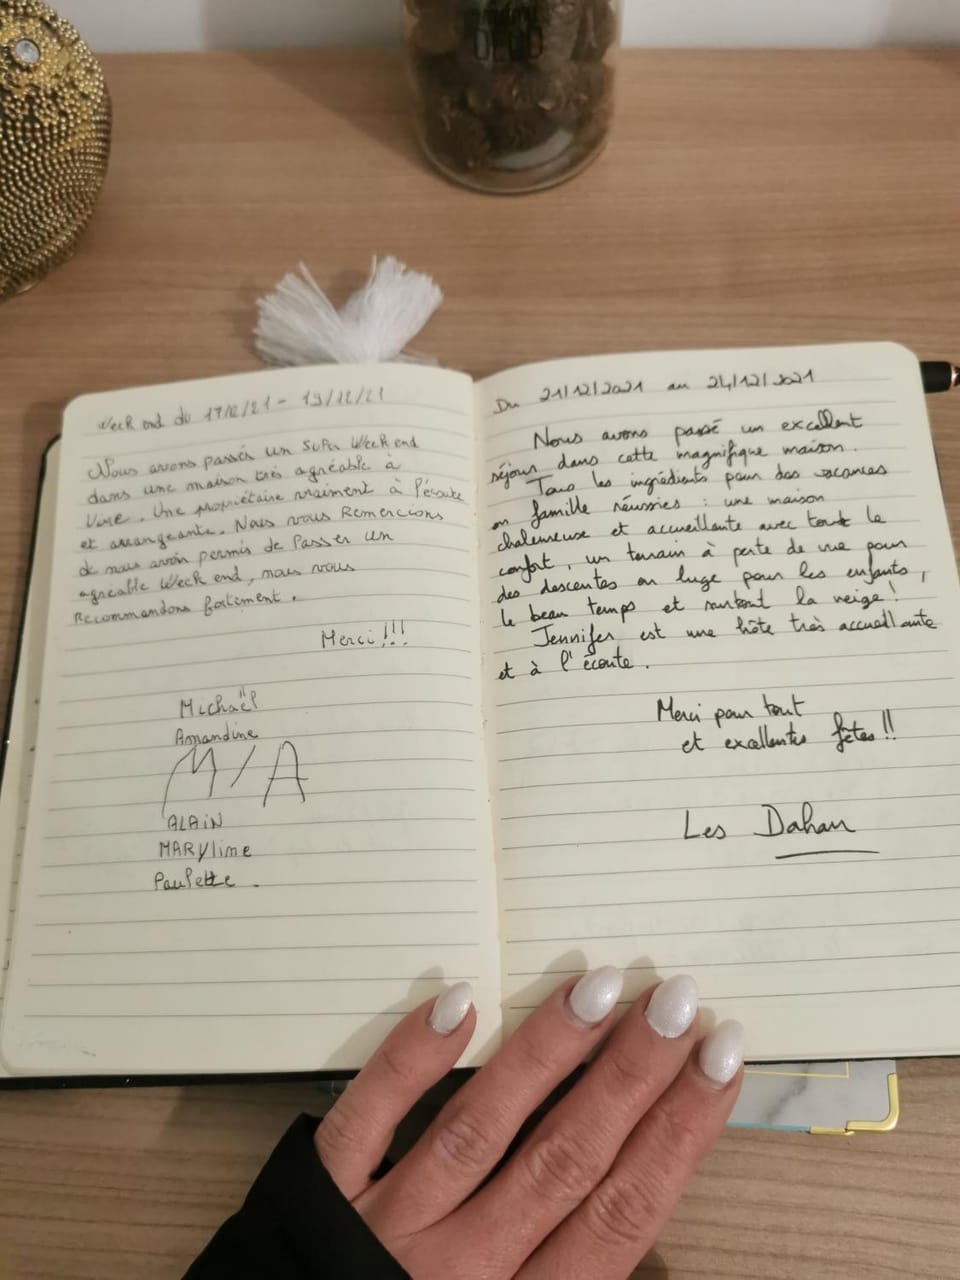 Week end du 17/12/21 - 19/12/21
Nous avons passer un super Week end
dans une maison très agréable à
vivre. Une propriétaire vraiment à l'écoute
et arrangeante. Nous vous Remercions
de nous avoir permis de Passer un
agréable Week end, nous vous
Recommandons fortement.
Merci!!!
Michaël
Amandine
M/A
ALAIN
MARyline
Paulette.
Du 21/12/2021 au 24/12/2021
Nous avons passé un excellent
séjour dans cette magnifique maison.
Tous les ingrédients pour des vacances
en famille réussies : une maison
chaleureuse et accueillante avec tout le
confort, un terrain à perte de vue pour
des descentes en luge pour les enfants,
le beau temps et surtout la neige!
Jennifer est une hôte très accueillante
et à l'écoute.
Merci pour tout
et excellentes fêtes!!
Les Dahan